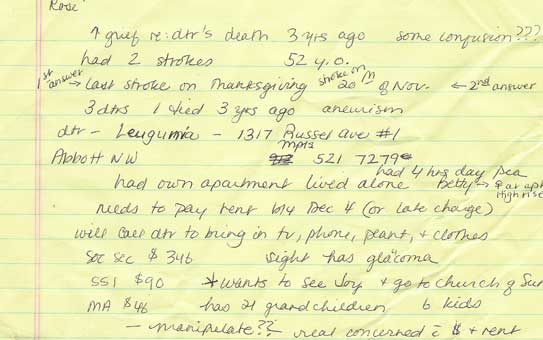 Rose
↑ grief re: dtr's death 3 yrs ago some confusion???
had 2 strokes 52 y.o.
1st answer → last stroke on Thanksgiving stroke on 20th of Nov. ← 2nd answer
3 dtrs 1 died 3 yrs ago aneurism
dtr - - 1317 Russel Ave #1
Mpls
Abbott NW 521 7279
had 4 hrs day
had own apartment lived alone Betty → at apt
High rise
needs to pay rent by Dec 4 (or late charge)
will call dtr to bring in tv, phone, plant, + clothes
Soc Sec $ 346 sight has glacoma
SSI $90 * wants to see Joy + go to church & Sun
MA $46 has 21 grandchildren 6 kids
- manipulate?? real concerned c̄ $ + rent